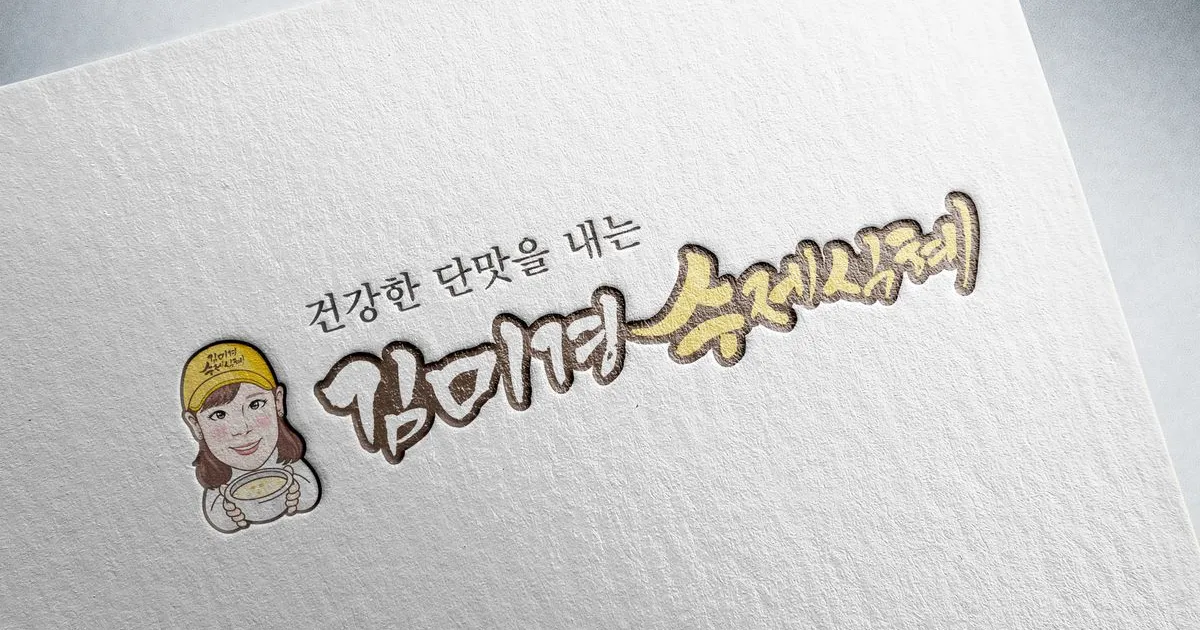 건강한 단맛을 내는
김미경 수제식혜
김미경
수제식혜